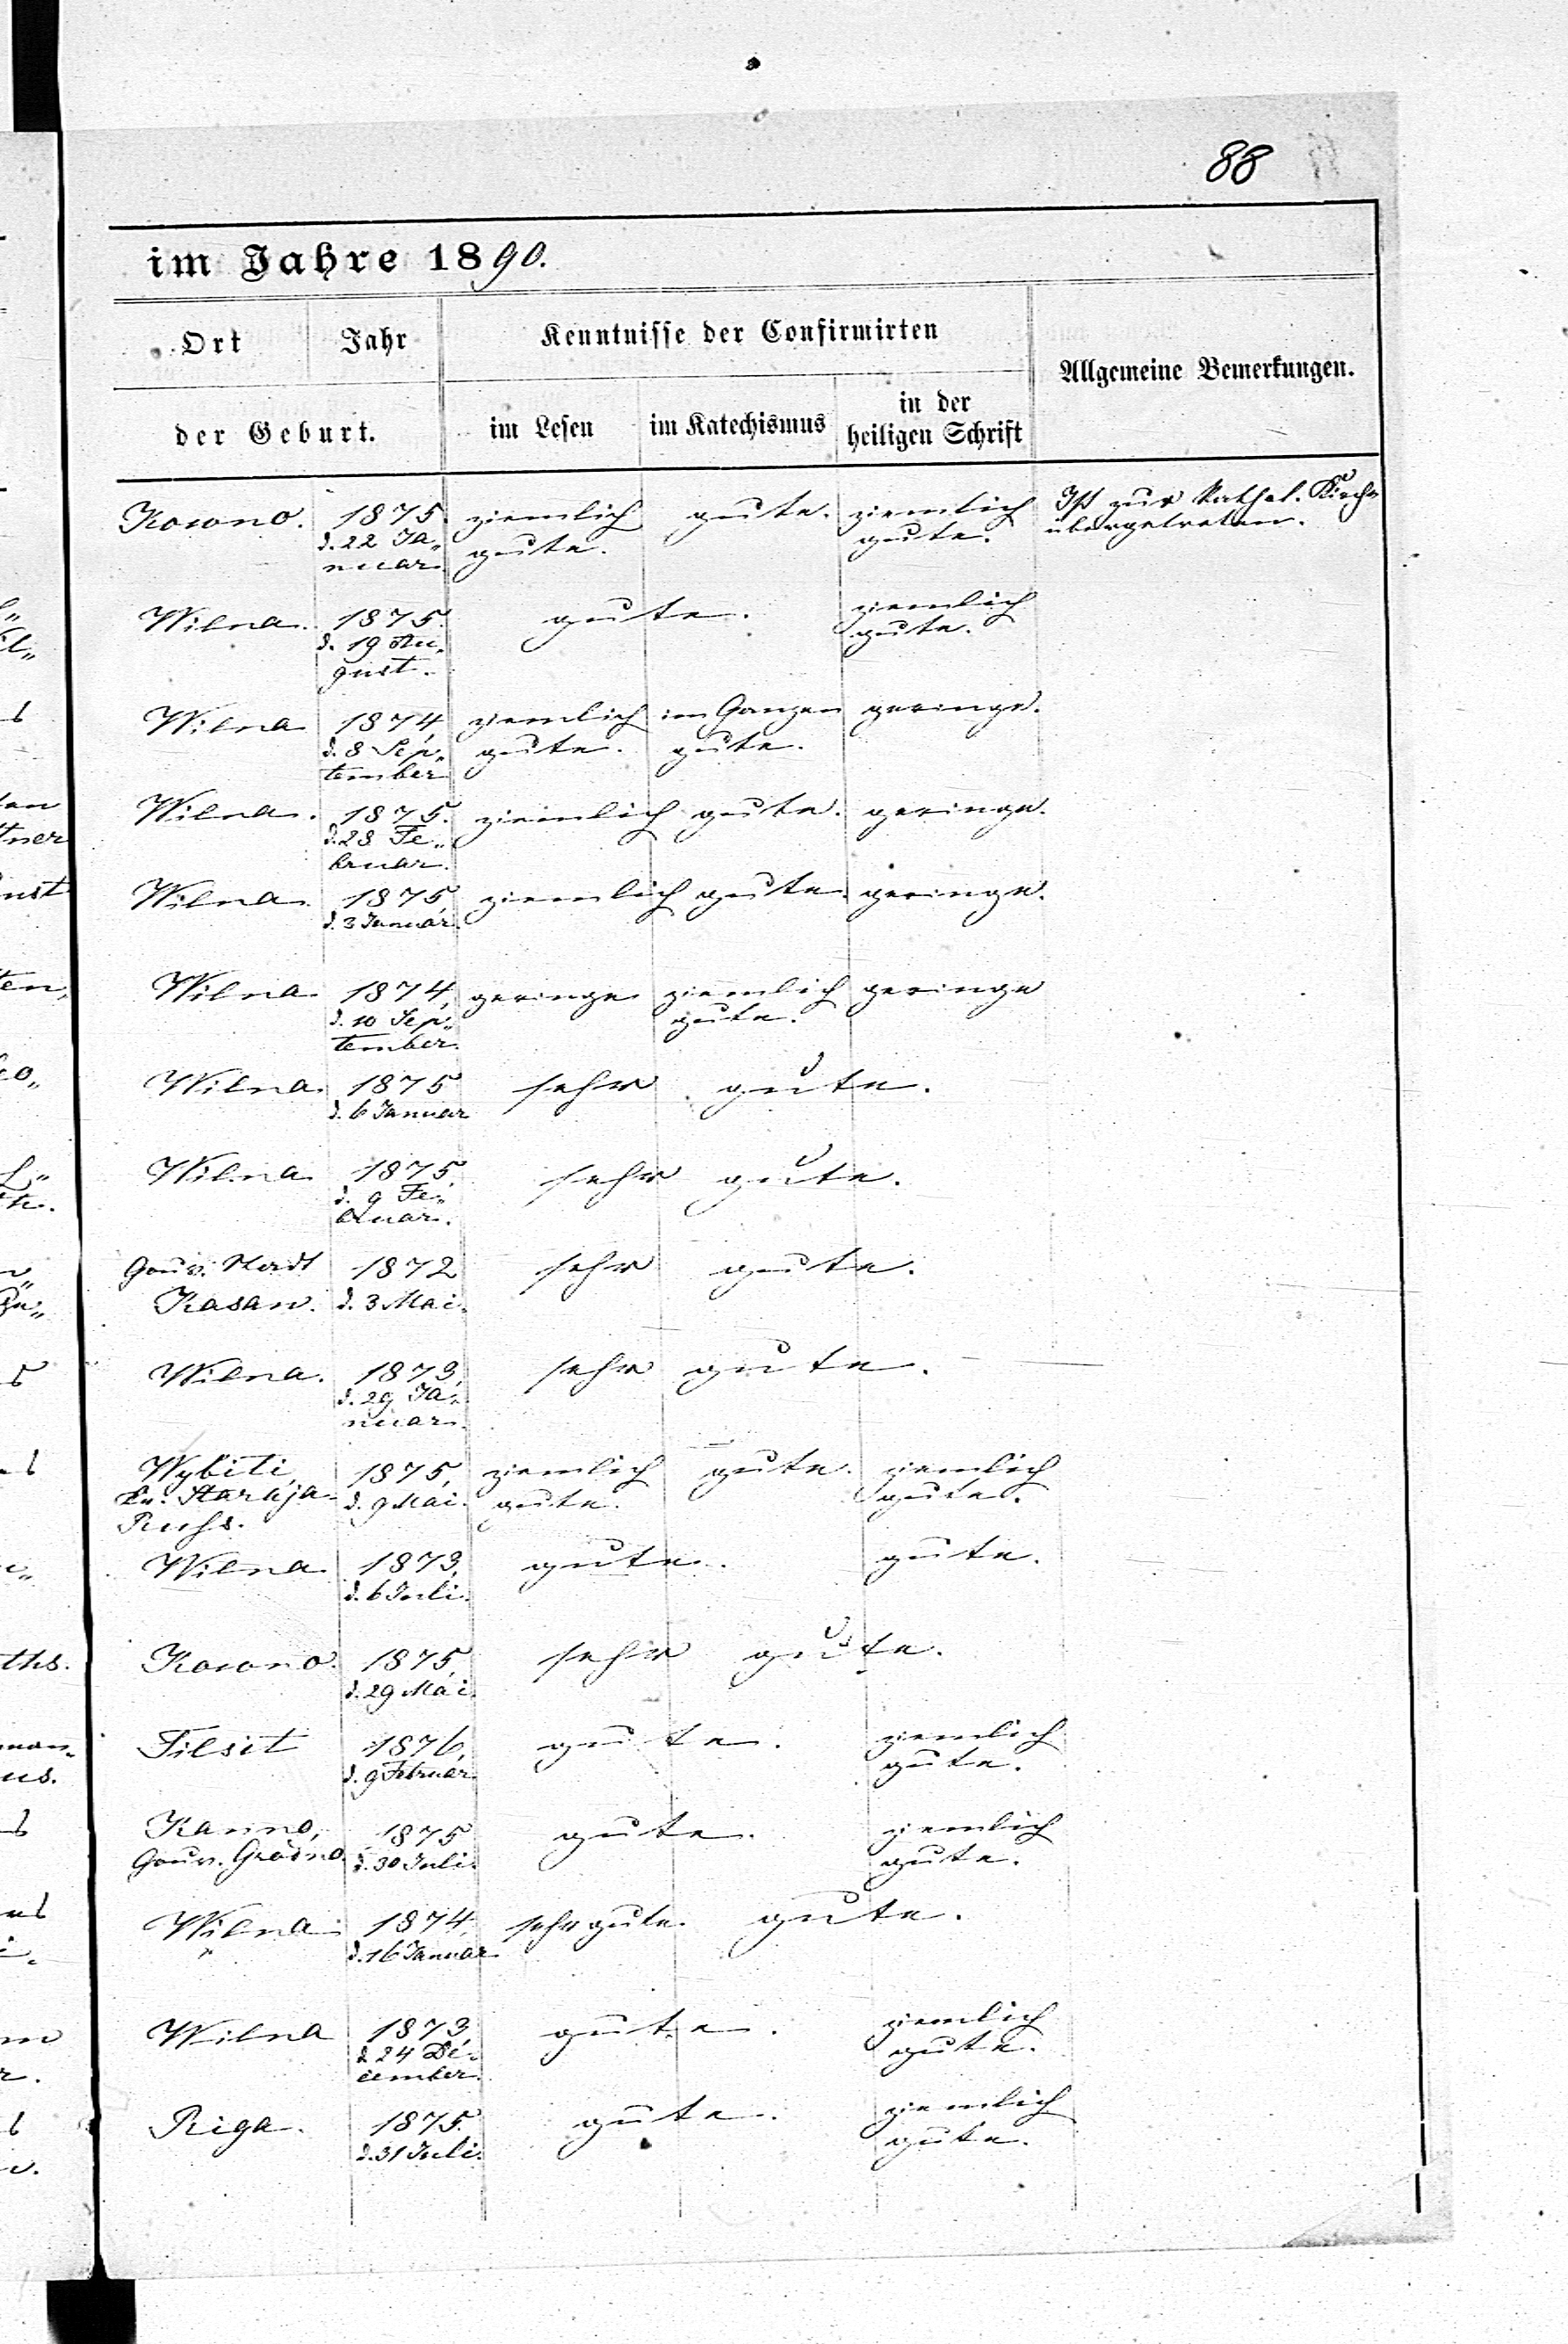 88
im Jahre 1890.
Ort Jahr Kenntnisse der Confirmirten Allgemeine Bemerkungen.
der Geburt. im Lesen im Katechismus in der heiligen Schrift
Kowno. 1875 ziemlich gute. ziemlich Ist zur Kathol. Kirche
d. 22 Ja„ gute. gute. übergetreten.
nuar.
Wilna. 1875. gute. ziemlich
d. 19 Au„ gute.
gust.
Wilna 1874, ziemlich im Ganzen geringe.
d. 8 Sep„ gute. gute.
tember
Wilna. 1875. ziemlich gute. geringe.
d. 28 Fe„
bruar.
Wilna. 1875 ziemlich gute. geringe.
d. 3 Januar.
Wilna 1874, geringe ziemlich geringe
d. 10 Sep„ gute.
tember.
Wilna. 1875 sehr gute.
d. 6 Januar
Wilna 1875, sehr gute.
d. 9 Fe„
bruar.
Gouv. Stadt 1872 sehr gute.
Kasan. d. 3 Mai.
Wilna. 1873, sehr gute.
d. 29 Ja„
nuar.
Wybiti, 1875, ziemlich gute. ziemlich
Staraja d. 9 Mai. gute. gute.
Russ.
Wilna 1873, gute. gute.
d. 6 Juli.
Kowno. 1875, sehr gute.
d. 29 Mai.
Tilsit 1876, gute. ziemlich
d. 9 Februar gute.
1875 gute. ziemlich
Gouv. Grodno. d. 30 Juli. gute.
Wilna 1874, sehr gute. gute.
„ d. 16 Januar
Wilna 1873, gute. ziemlich
d. 24 De„ gute.
cember.
Riga. 1875. gute. ziemlich
d. 31 Juli. gute.